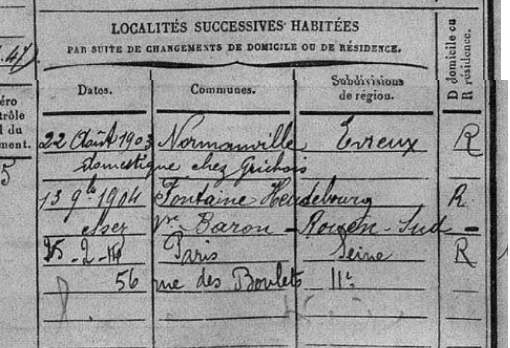 LOCALITÉS SUCCESSIVES HABITÉES
PAR SUITE DE CHANGEMENTS DE DOMICILE OU DE RÉSIDENCE.
Dates. Communes. Subdivisions de région. D domicile ou R résidence.
22 Août 1903 Normanville Evreux R
domestique chez
13 9bre 1904 Fontaine Heudebourg R
chez Vve Baron - Rouen-Sud -
25-2- Paris Seine R
56 rue des Boulets 11e